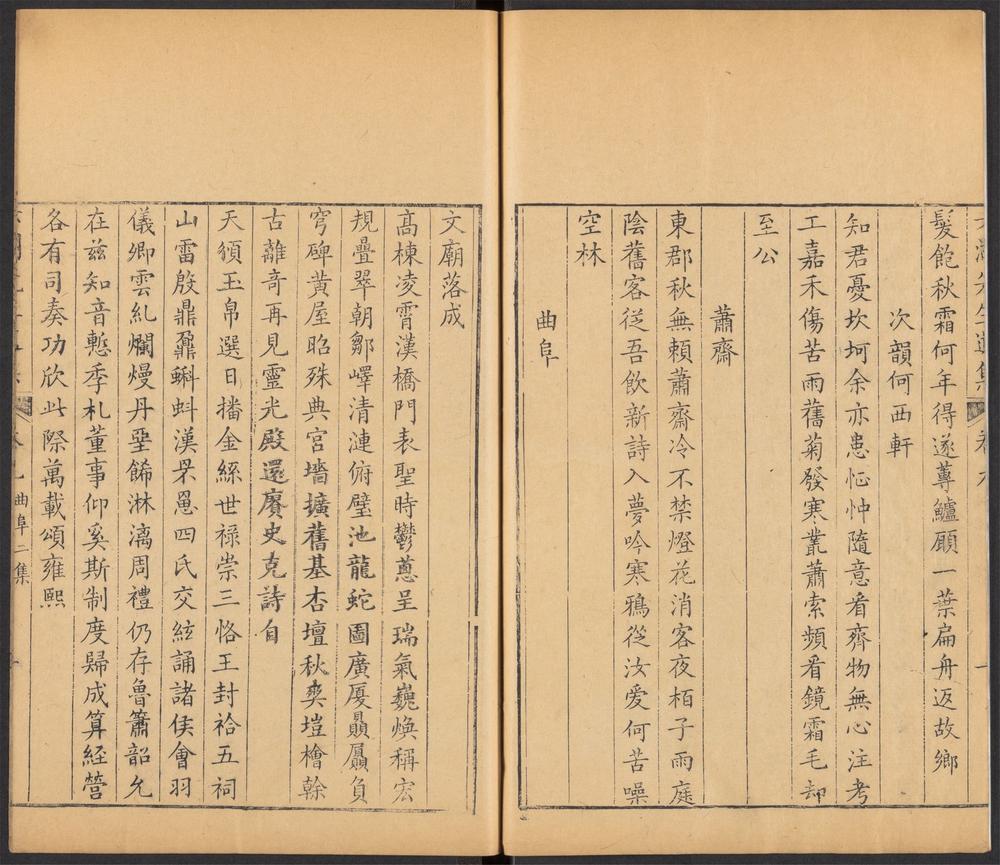 髮飽秋霜何年得遂蓴鱸願一葉扁舟返故鄉
次韻何西軒
知君憂坎坷余亦患怔忡隨意看齊物無心注考
工嘉禾傷苦雨舊菊發寒叢蕭索頻看鏡霜毛却
至公
蕭齋
東郡秋無賴蕭齋冷不禁燈花消客夜栢子雨庭
陰舊客從吾飲新詩入夢吟寒鴉從汝愛何苦噪
空林
曲阜
文廟落成
高棟凌霄漢橋門表聖時鬱蔥呈瑞氣巍煥稱宏
規疊翠朝鄒嶧清漣俯璧池龍蛇圖廣厦贔屭負
穹碑黃屋昭殊典宮墻擴舊基杏壇秋奕塏檜榦
古離奇再見靈光殿還賡史克詩自
天頒玉帛選日播金絲世祿崇三恪王封祫五祠
山雷殷鼎鼐蝌蚪漢罘罳四氏交絃誦諸侯會羽
儀卿雲糺爛熳丹堊餙淋漓周禮仍存魯簫韶允
在兹知音慙季札董事仰奚斯制度歸成算經營
各有司奏功欣此際萬載頌雍熙
卷九 曲阜二集